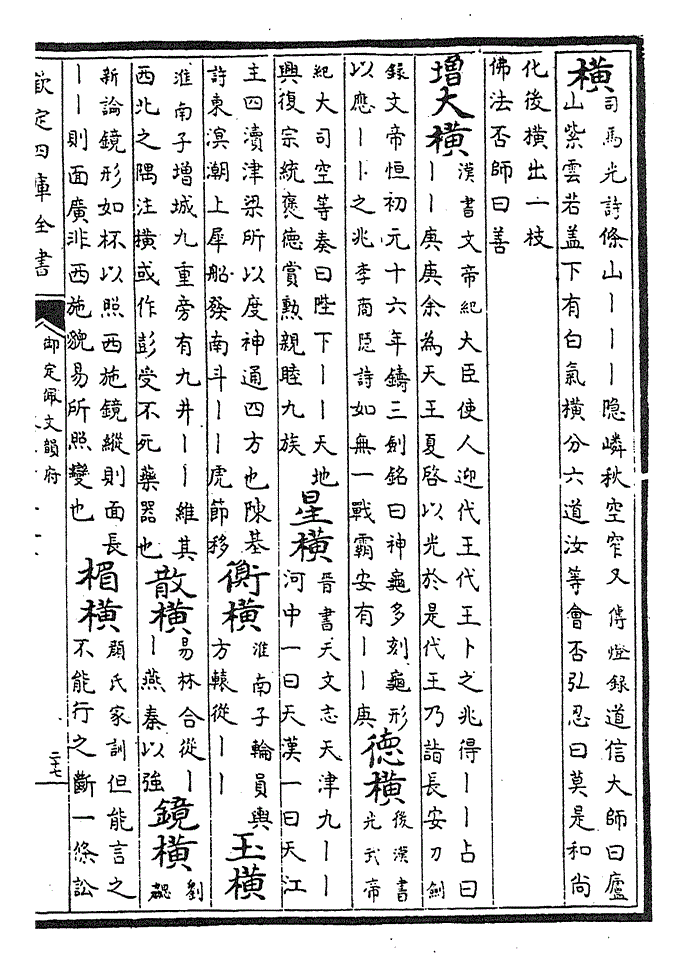 橫
司馬光詩條山丨丨丨隱嶙秋空窄又傳燈錄道信大師曰廬
山紫雲若盖下有白氣橫分六道汝等會否弘忍曰莫是和尚
化後橫出一枝
佛法否師曰善
增大橫
漢書文帝紀大臣使人迎代王代王卜之兆得丨丨占曰
丨丨庚庚余為天王夏啓以光於是代王乃詣長安刀劍
錄文帝恒初元十六年鑄三劍銘曰神龜多刻龜形
以應丨丨之兆李商隱詩如無一戰霸安有丨丨庚
德橫
後漢書
光武帝
紀大司空等奏曰陛下丨丨天地
興復宗統褒德賞勲親睦九族
星橫
晉書天文志天津九丨丨
河中一曰天漢一曰天江
主四瀆津梁所以度神通四方也陳基
詩東溟潮上犀船發南斗丨丨虎節移
衡橫
淮南子輪員輿
方轅從丨丨
玉橫
淮南子增城九重旁有九井丨丨維其
西北之隅注橫或作彭受不死藥器也
散橫
易林合從丨
丨燕秦以強
鏡橫
劉
勰
新論鏡形如杯以照西施鏡縱則面長
丨丨則面廣非西施貌易所照變也
楣橫
顔氏家訓但能言之
不能行之斷一條訟
欽定四庫全書
御定佩文韻府
二十七